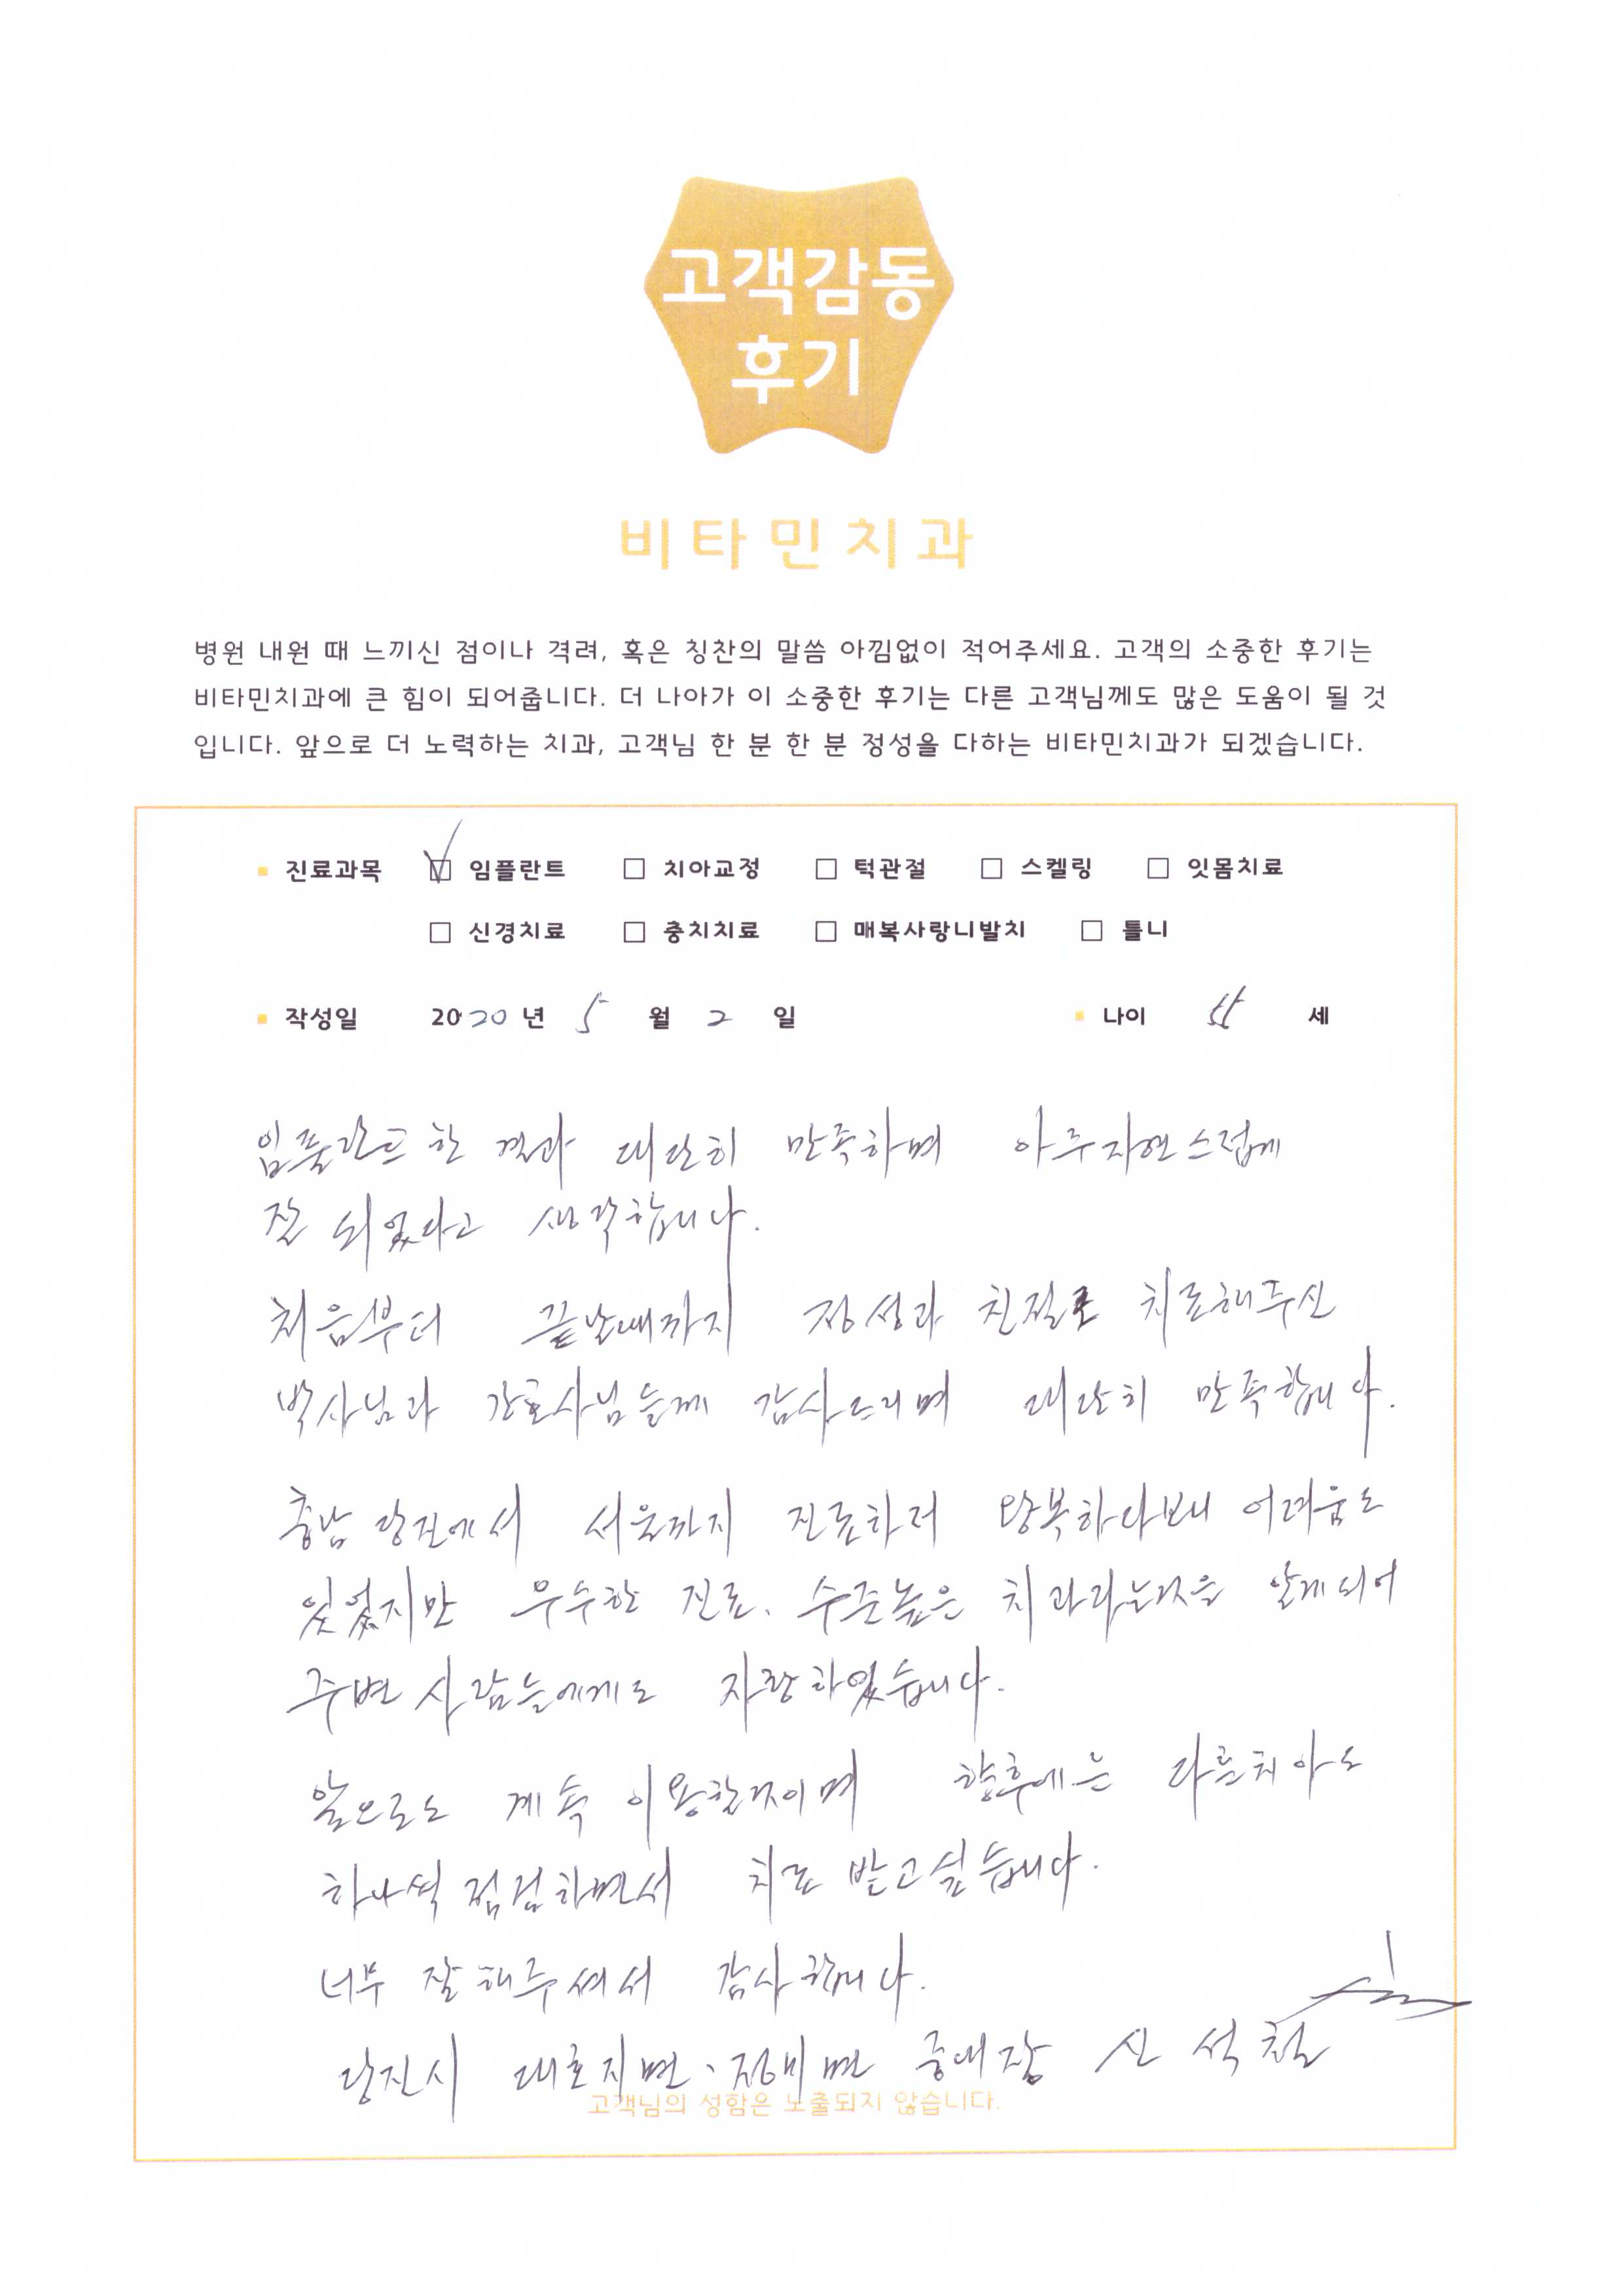 고객감동
후기
비타민치과
병원 내원 때 느끼신 점이나 격려, 혹은 칭찬의 말씀 아낌없이 적어주세요. 고객의 소중한 후기는
비타민치과에 큰 힘이 되어줍니다. 더 나아가 이 소중한 후기는 다른 고객님께도 많은 도움이 될 것
입니다. 앞으로 더 노력하는 치과, 고객님 한 분 한 분 정성을 다하는 비타민치과가 되겠습니다.
진료과목 ☑ 임플란트 □ 치아교정 □ 턱관절 □ 스켈링 □ 잇몸치료
□ 신경치료 □ 충치치료 □ 매복사랑니발치 □ 틀니
작성일 2020 년 5 월 2 일 나이 55 세
임플란트 한 결과 대단히 만족하며 아주 자연스럽게
잘 되었다고 생각합니다.
처음부터 끝날때까지 정성과 친절로 치료해주신
박사님과 간호사님들께 감사드리며 대단히 만족합니다.
충남 당진에서 서울까지 진료하러 왕복하다보니 어려움도
있었지만 우수한 진료, 수준높은 치과라는것을 알게되어
주변 사람들에게도 자랑하였습니다.
앞으로도 계속 이용할것이며 향후에는 다른치아도
하나씩 점검하면서 치료 받고싶습니다.
너무 잘해주셔서 감사합니다.
당진시 대호지면·정미면 중대장 신석철
고객님의 성함은 노출되지 않습니다.